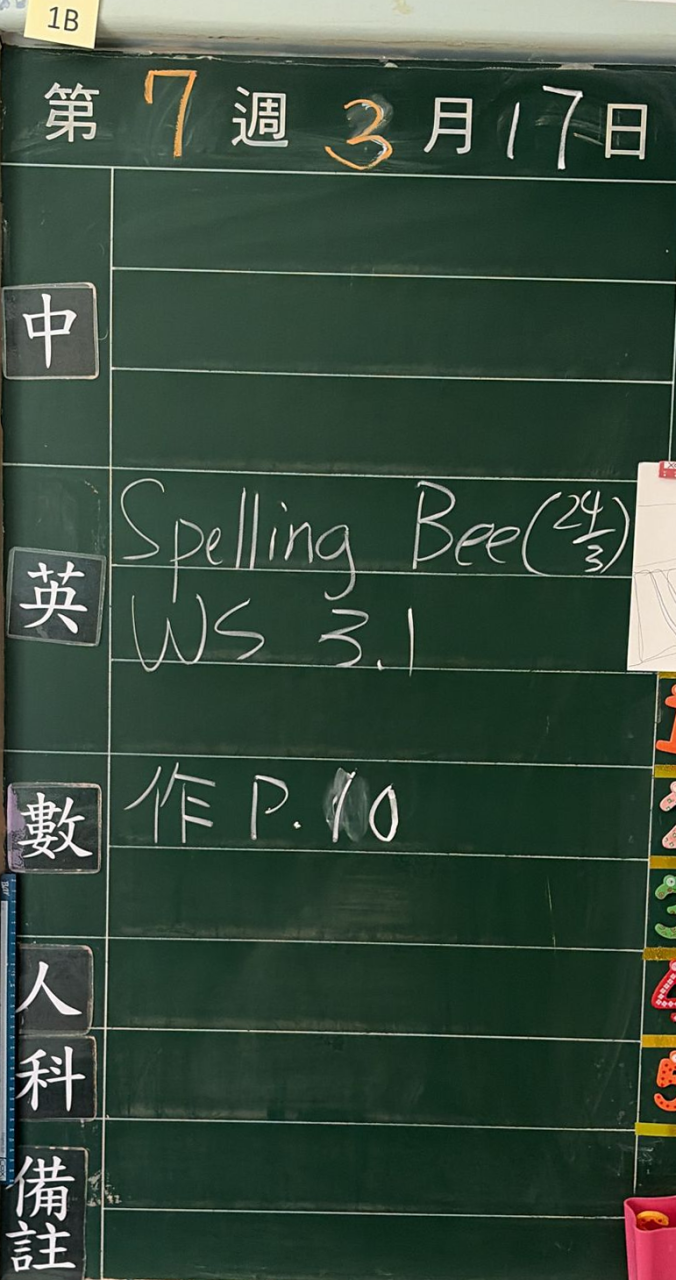 1B
第 7 週 3 月 17 日
中
英
Spelling Bee (24/3)
WS 3.1
數
作 P. 10
人
科
備
註
1
2
3
4
5